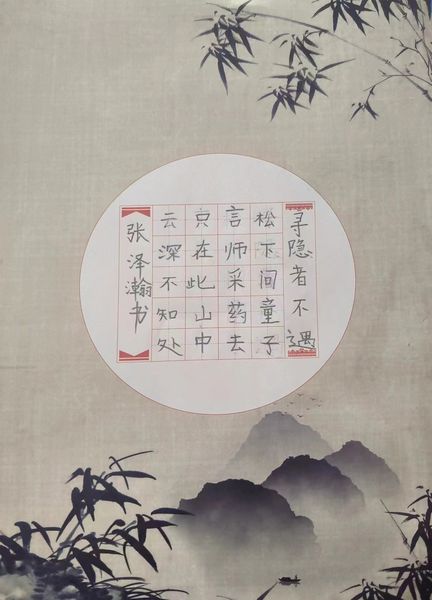 寻隐者不遇
松下间童子
言师采药去
只在此山中
云深不知处
张泽瀚书